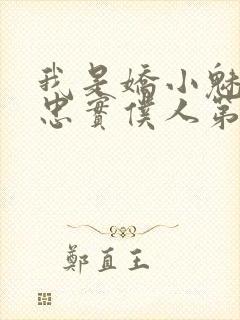 我是嬌小魅
忠實僕人第
鄭直王